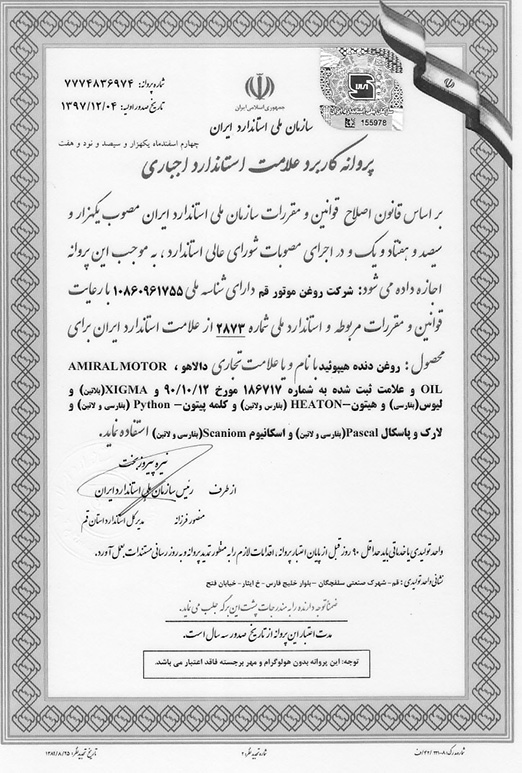 شماره پروانه: ۷۷۷۴۸۳۶۹۷۴
تاریخ صدور اولیه: ۱۳۹۷/۱۲/۰۴
جمهوری اسلامی ایران
155978
سازمان ملی استاندارد ایران
چهارم اسفندماه یکهزار و سیصد و نود و هفت
پروانه کاربرد علامت استاندارد اجباری
بر اساس قانون اصلاح قوانین و مقررات سازمان ملی استاندارد ایران مصوب یکهزار و
سیصد و هفتاد و یک و در اجرای مصوبات شورای عالی استاندارد، به موجب این پروانه
اجازه داده می شود: شرکت روغن موتور قم دارای شناسه ملی ۱۰۸۶۰۹۶۱۷۵۵ با رعایت
قوانین و مقررات مربوطه و استاندارد ملی شماره ۲۸۷۳ از علامت استاندارد ایران برای
محصول: روغن دنده هیپوئید با نام و یا علامت تجاری دالاهو ، AMIRALMOTOR
OIL و علامت ثبت شده به شماره ۱۸۶۷۱۷ مورخ ۹۰/۱۰/۱۲ و XIGMA(بلاتین) و
لیوس(بفارسی) و هیتون–HEATON (بفارس ولاتین) و کلمه پیتون– Python (بفارسی و لاتین) و
لارک و پاسکال Pascal(بفارسی و لاتین) و اسکانیوم Scaniom(بفارسی و لاتین) استفاده نماید.
نیره پیروزبخت
از طرف رئیس سازمان ملی استاندارد ایران
منصور فرزانه مدیر کل استاندارد استان قم
واحد تولیدی یا خدماتی باید حداقل ۹۰ روز قبل از پایان اعتبار پروانه، اقدامات لازم را به منظور تمدید پروانه و به روز رسانی مستندات بعمل آورد.
نشانی واحد تولیدی: قم– شهرک صنعتی سلفچگان – بلوار خلیج فارس – خ ایثار– خیابان فتح
ضمناً توجه دارنده را به مندرجات پشت این برگه جلب می نماید.
مدت اعتبار این پروانه از تاریخ صدور سه سال است.
توجه: این پروانه بدون هولوگرام و مهر برجسته فاقد اعتبار می باشد.
شماره تجدید نظر: ۲